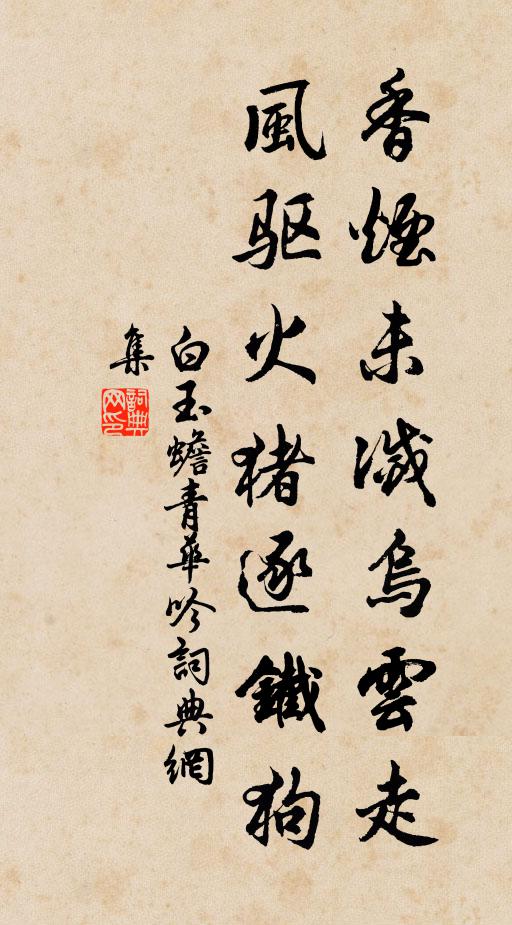 香煙未滅烏雲走
風驱火猪逐鐵狗
白玉蟾青華吟詞典網
集
詞典
网印